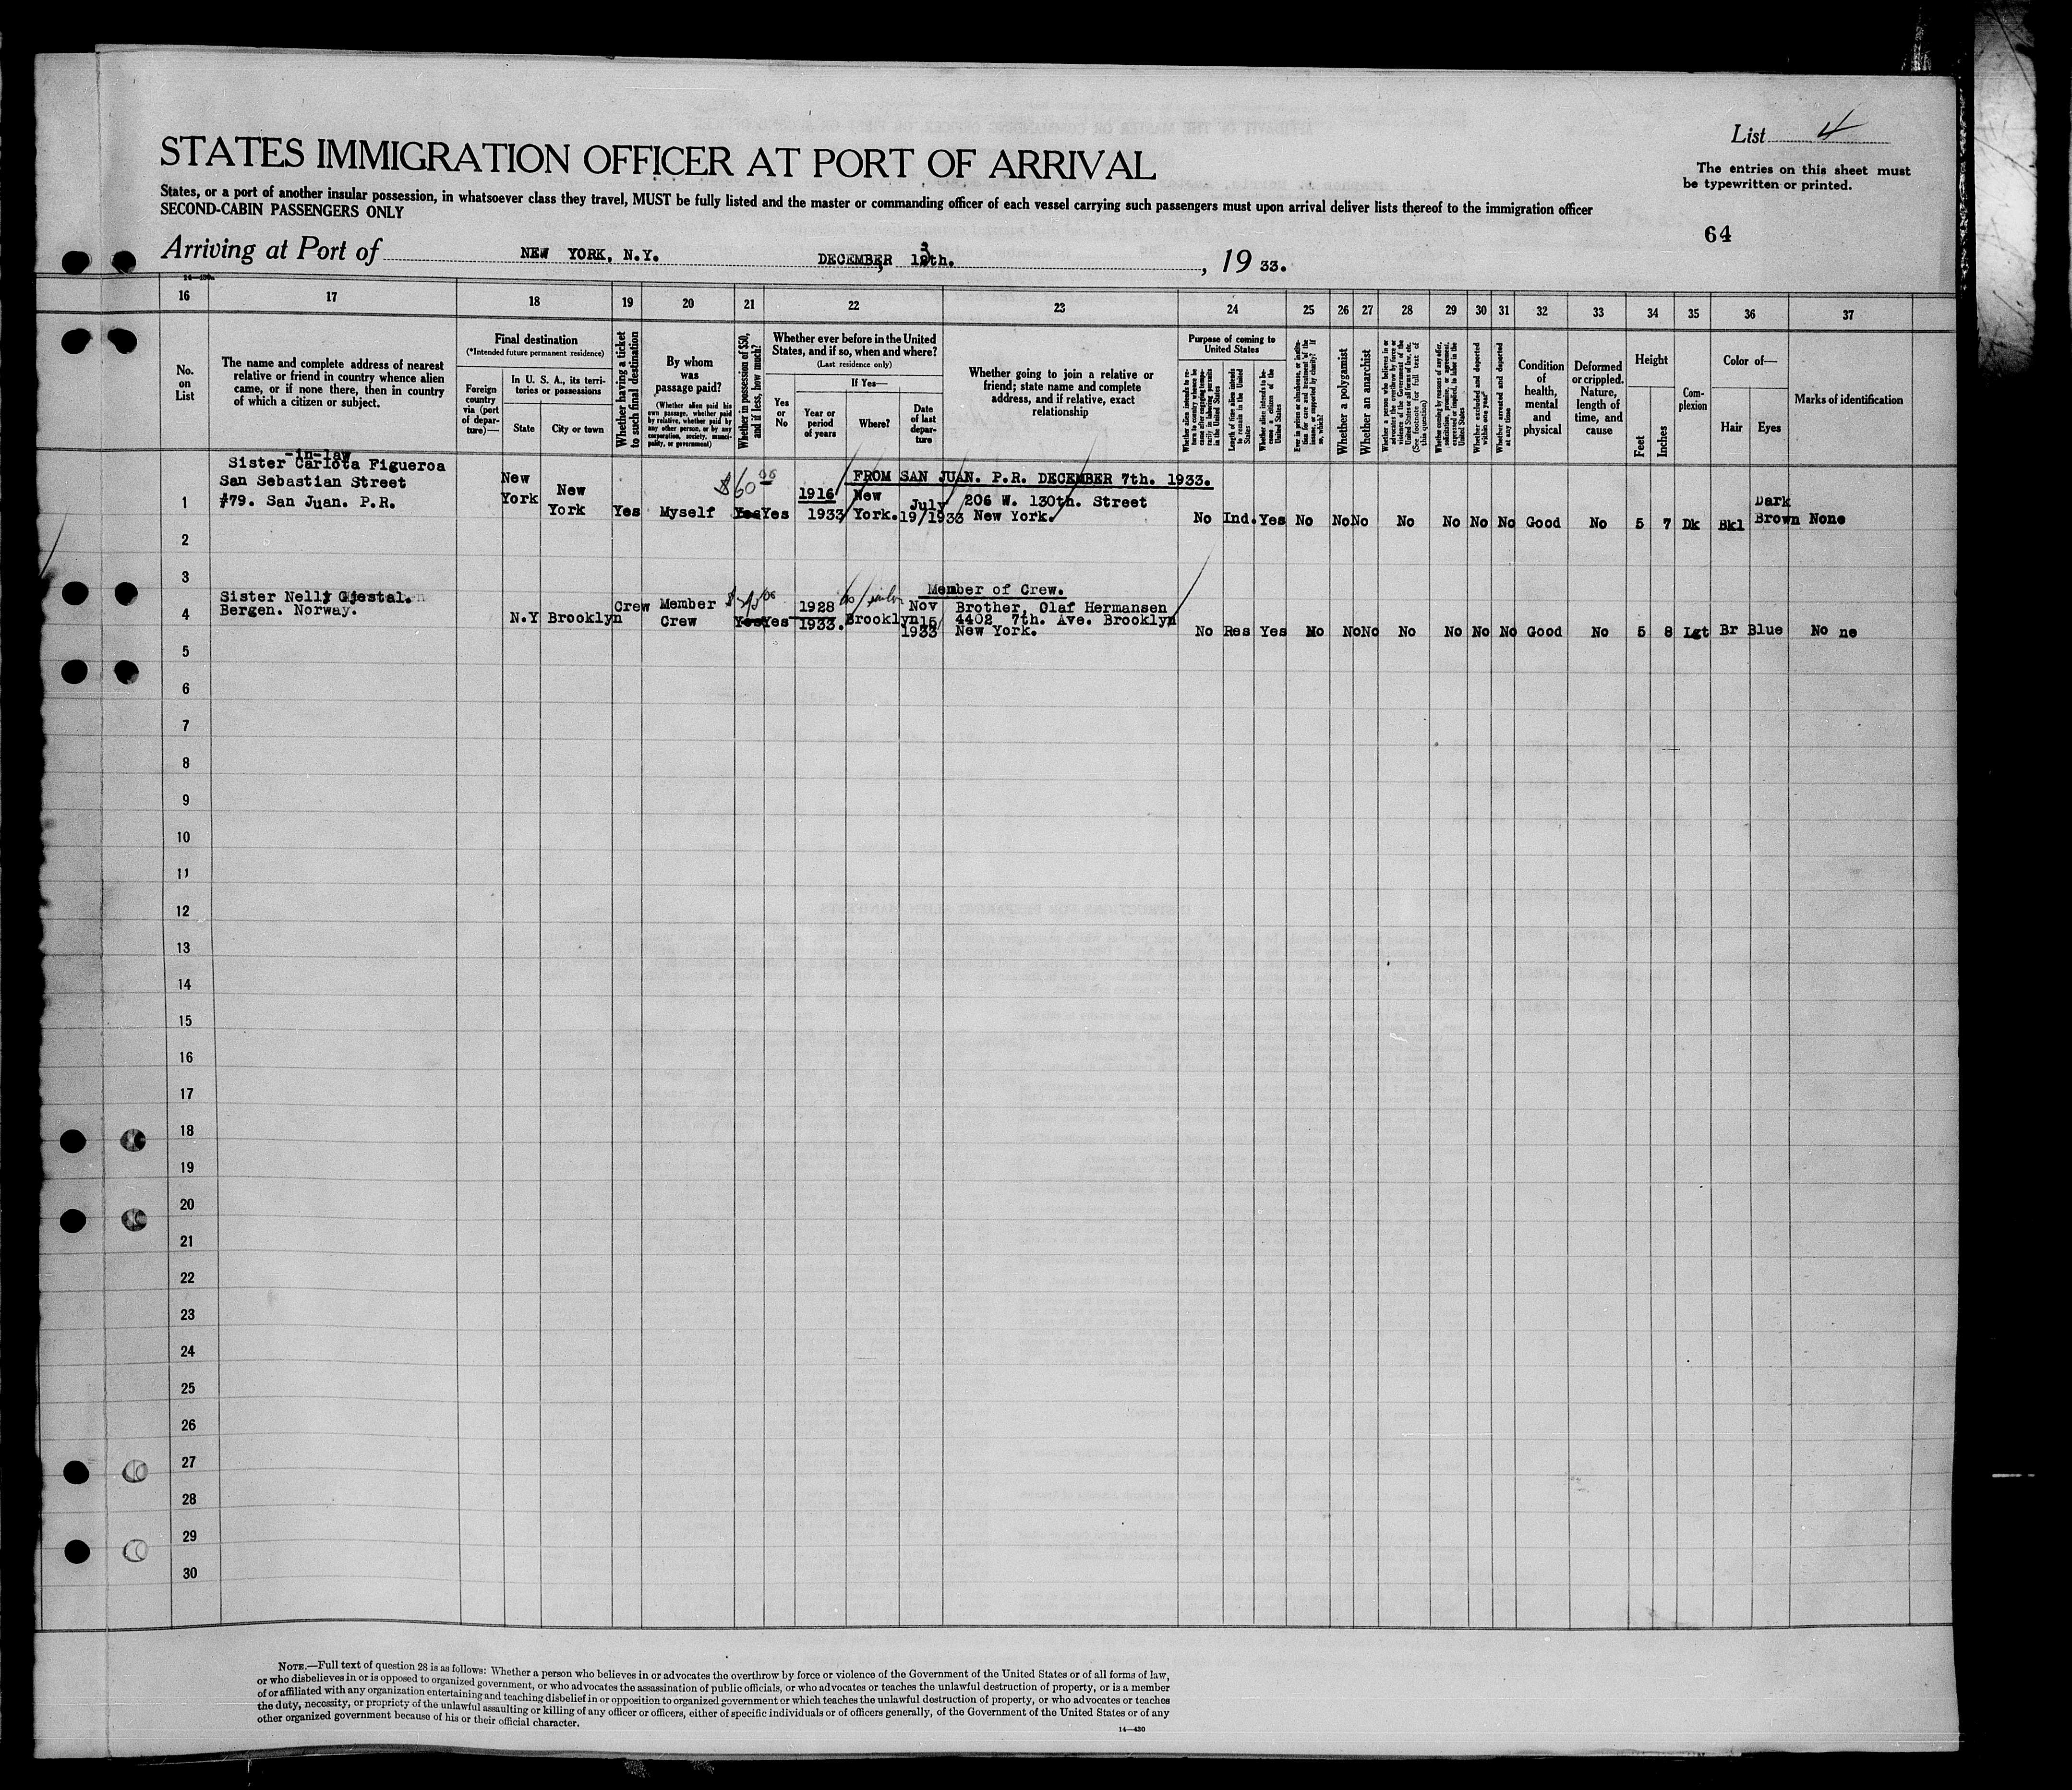 List 4
STATES IMMIGRATION OFFICER AT PORT OF ARRIVAL
The entries on this sheet must
be typewritten or printed.
States, or a port of another insular possession, in whatsoever class they travel, MUST be fully listed and the master or commanding officer of each vessel carrying such passengers must upon arrival deliver lists thereof to the immigration officer
SECOND-CABIN PASSENGERS ONLY
64
Arriving at Port of NEW YORK, N.Y. DECEMBER 13th. , 19 33.
16 17 18 19 20 21 22 23 24 25 26 27 28 29 30 31 32 33 34 35 36 37
No.
on
List
The name and complete address of nearest
relative or friend in country whence alien
came, or if none there, then in country
of which a citizen or subject.
Final destination
(*Intended future permanent residence)
Foreign
country
via (port
of depar-
ture)—
In U. S. A., its terri-
tories or possessions
State
City or town
Whether having a ticket
to such final destination
By whom
was
passage paid?
(Whether alien paid his
own passage, whether paid
by relative, whether paid by
any other person, or by any
corporation, society, munici-
pality, or government)
Whether in possession of $50,
and if less, how much?
Whether ever before in the United
States, and if so, when and where?
(Last residence only)
Yes
or
No
If Yes—
Year or
period
of years
Where?
Date
of last
depar-
ture
Whether going to join a relative or
friend; state name and complete
address, and if relative, exact
relationship
Purpose of coming to
United States
Whether alien intends to re-
turn to country whence he
came after engaging tempo-
rarily in laboring pursuits
in the United States
Length of time alien intends
to remain in the United
States
Whether alien intends to be-
come a citizen of the
United States
Ever in prison or almshouse, or institu-
tion for care and treatment of the
insane, or supported by charity? If
so, which?
Whether a polygamist
Whether an anarchist
Whether a person who believes in or
advocates the overthrow by force or
violence of the Government of the
United States or all forms of law, etc.
(See footnote for full text of
this question)
Whether coming by reason of any offer,
solicitation, promise, or agreement,
expressed or implied, to labor in the
United States
Whether excluded and deported
within one year
Whether arrested and deported
at any time
Condition
of
health,
mental
and
physical
Deformed
or crippled.
Nature,
length of
time, and
cause
Height
Feet
Inches
Com-
plexion
Color of—
Hair
Eyes
Marks of identification
-in-law
Sister Carlota Figueroa
San Sebastian Street
#79. San Juan. P.R.
1
New
York
New
York
Yes
Myself
$60 00
Yes
Yes
1916
1933
New
York.
July
19/1933
FROM SAN JUAN. P.R. DECEMBER 7th. 1933.
206 W. 130th. Street
New York.
No Ind. Yes No No No No No No No Good No 5 7 Dk Bkl
Dark
Brown
None
2
3
Sister Nelly Gjestal.
Bergen. Norway.
4
N.Y Brooklyn
Crew
Member
Crew
Yes
Yes
1928
1933.
Brooklyn
Nov
15
1933
Member of Crew.
Brother, Olaf Hermansen
4402 7th. Ave. Brooklyn
New York.
No Res Yes No No No No No No No Good No 5 8 Lgt Br Blue No ne
5
6
7
8
9
10
11
12
13
14
15
16
17
18
19
20
21
22
23
24
25
26
27
28
29
30
NOTE.—Full text of question 28 is as follows: Whether a person who believes in or advocates the overthrow by force or violence of the Government of the United States or of all forms of law,
or who disbelieves in or is opposed to organized government, or who advocates the assassination of public officials, or who advocates or teaches the unlawful destruction of property, or is a member
of or affiliated with any organization entertaining and teaching disbelief in or opposition to organized government or which teaches the unlawful destruction of property, or who advocates or teaches
the duty, necessity, or propriety of the unlawful assaulting or killing of any officer or officers, either of specific individuals or of officers generally, of the Government of the United States or of any
other organized government because of his or their official character.
14—430